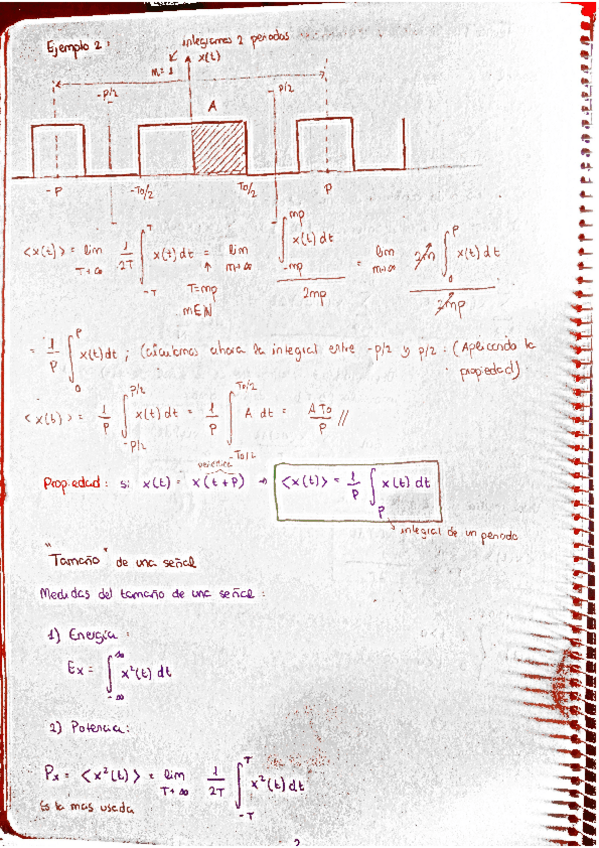 Ejemplo 2:
integramos 2 periodos
m=1
x(t)
-p/2
p/2
A
-P
-To/2
To/2
P
<x(t)> = lim T→∞ 1/2T ∫_{-T}^{T} x(t) dt = lim m→∞ ∫_{-mp}^{mp} x(t) dt / 2mp = lim m→∞ 2m ∫_0^P x(t) dt / 2mp
T=mp
m∈N
= 1/P ∫_0^P x(t)dt ; (calculamos ahora la integral entre -p/2 y p/2: (Aplicando la
propiedad)
<x(t)> = 1/P ∫_{-P/2}^{P/2} x(t) dt = 1/P ∫_{-To/2}^{To/2} A dt = A To/P //
Propiedad: si x(t) = x(t+P) → <x(t)> = 1/P ∫_P x(t) dt
integral de un periodo
"Tamaño" de una señal
Medidas del tamaño de una señal:
1) Energía:
Ex = ∫_{-∞}^{∞} x²(t) dt
2) Potencia:
Px = <x²(t)> = lim T→∞ 1/2T ∫_{-T}^{T} x²(t) dt
Es la mas usada
2